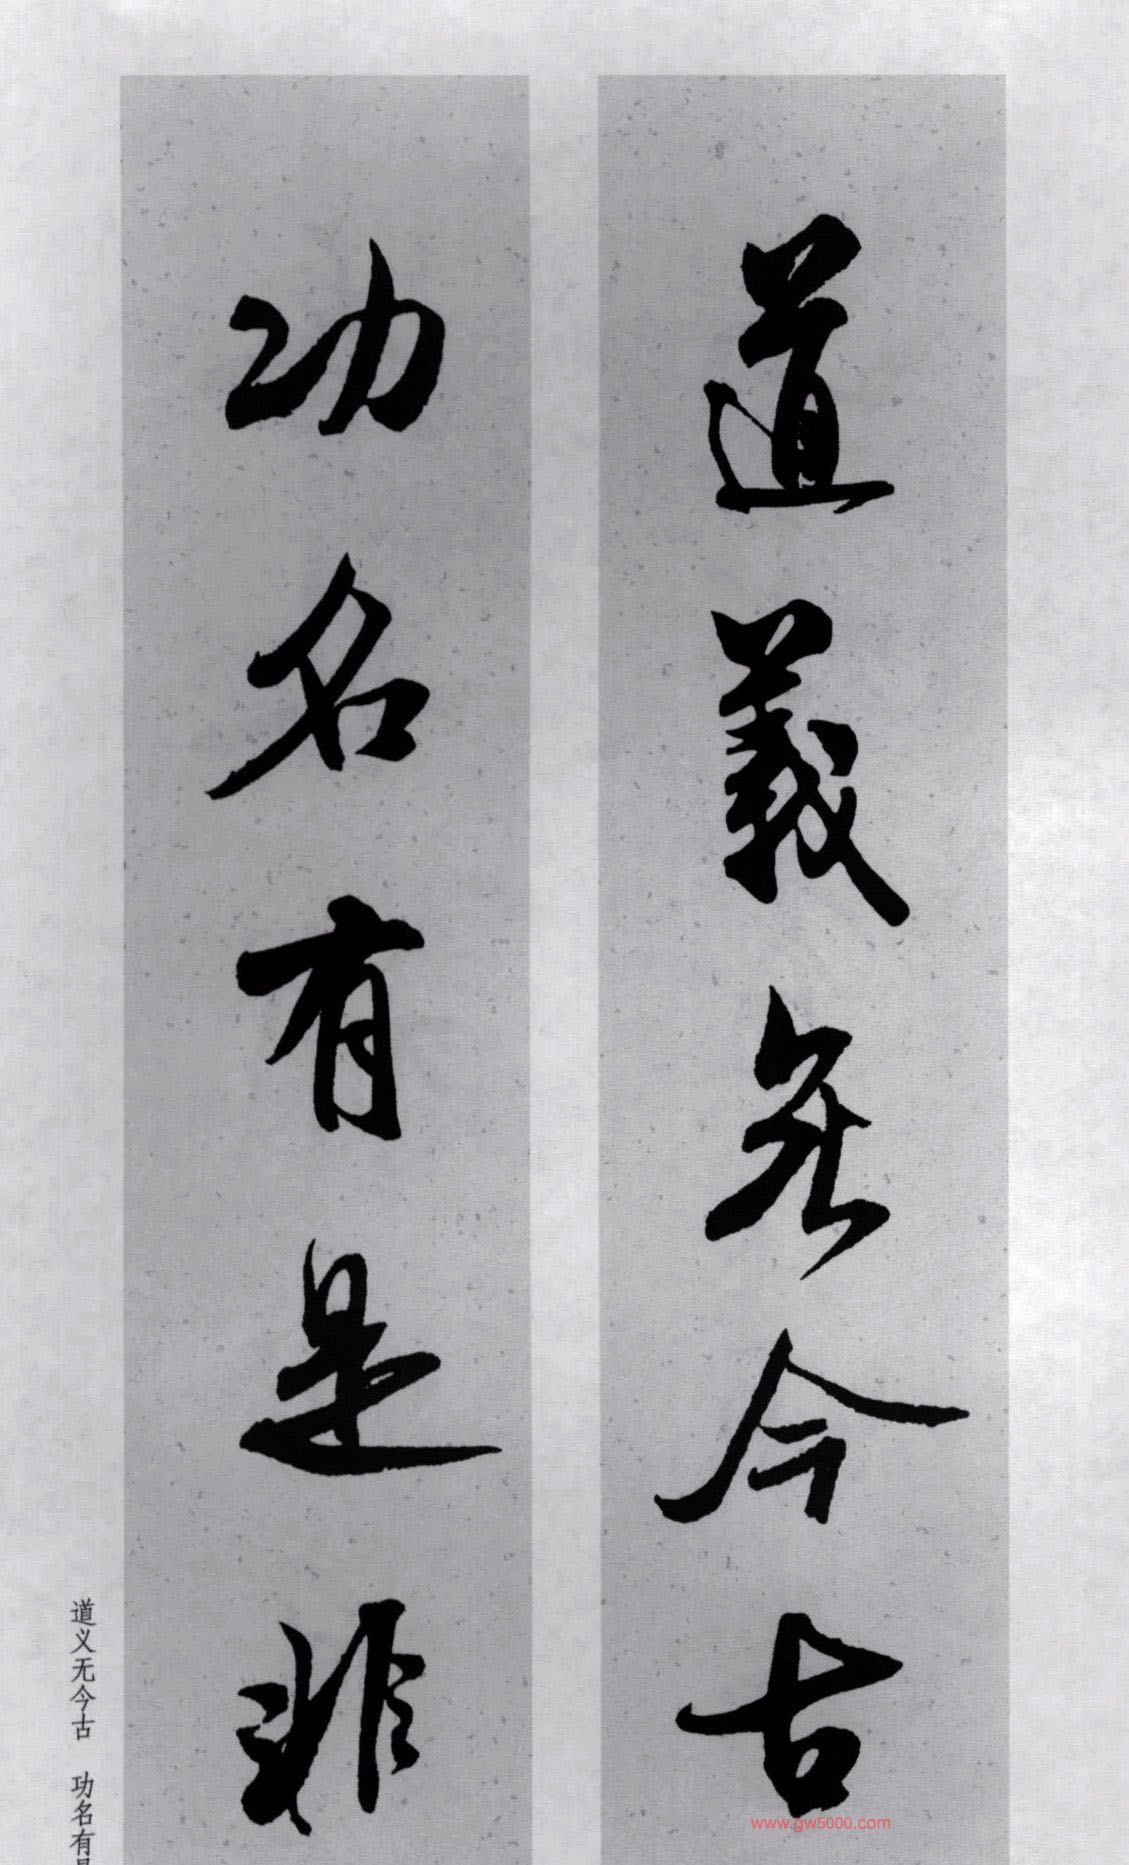 道義无今古
功名有是非
道义无今古 功名有是
www.gw5000.com